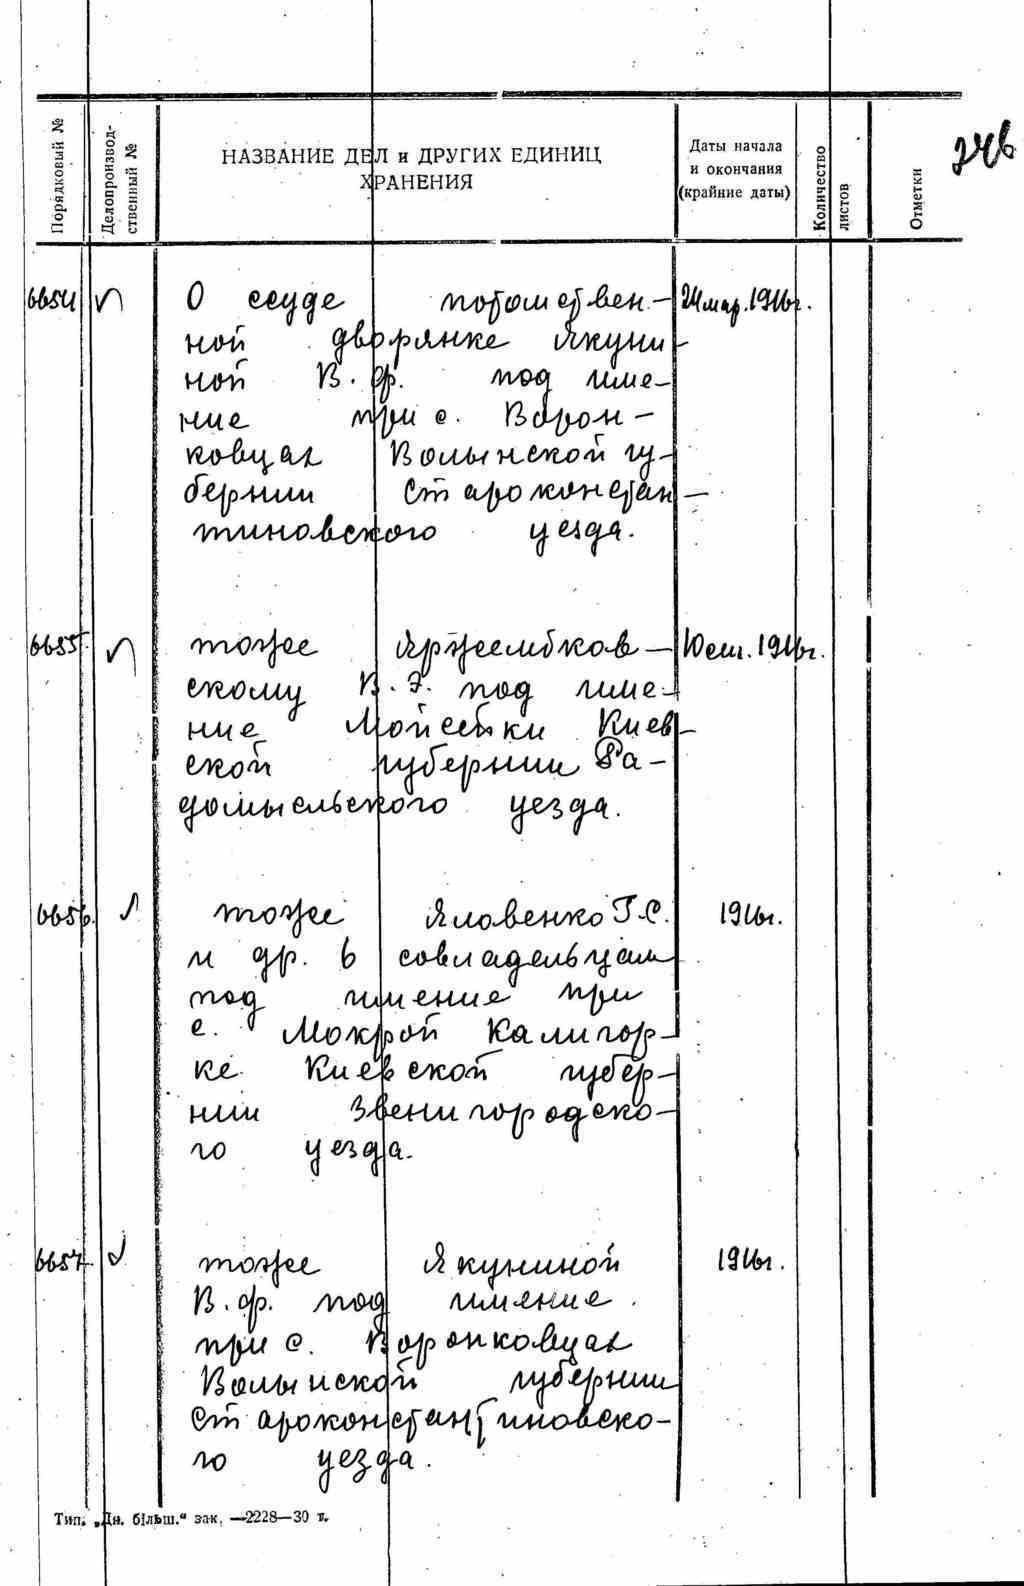 246
Порядковый №
Делопроизвод-
ственный №
НАЗВАНИЕ ДЕЛ и ДРУГИХ ЕДИНИЦ
ХРАНЕНИЯ
Даты начала
и окончания
(крайние даты)
Количество
листов
Отметки
6654 О ссуде потомствен- 24 мар. 1916г.
ной дворянке Якуни-
ной В.Ф. под име-
ние при с. Ворон-
ковцах Волынской гу-
бернии Староконстан-
тиновского уезда.
6655. тоже Яржембков- 1916г.
скому В.Э. под име-
ние Мойсейки Киев-
ской губернии Ра-
домысльского уезда.
6656. тоже Яловенко Г.С. 1916г.
и др. 6 совладельцам
под имение при
с. Мокрой Калигор-
ке Киевской губер-
нии Звенигородско-
го уезда.
6657. тоже Якуниной 1916г.
В.Ф. под имение
при с. Воронковцах
Волынской губернии
Староконстантиновско-
го уезда.
Тип. „Дн. більш.“ зак. —2228—30 т.